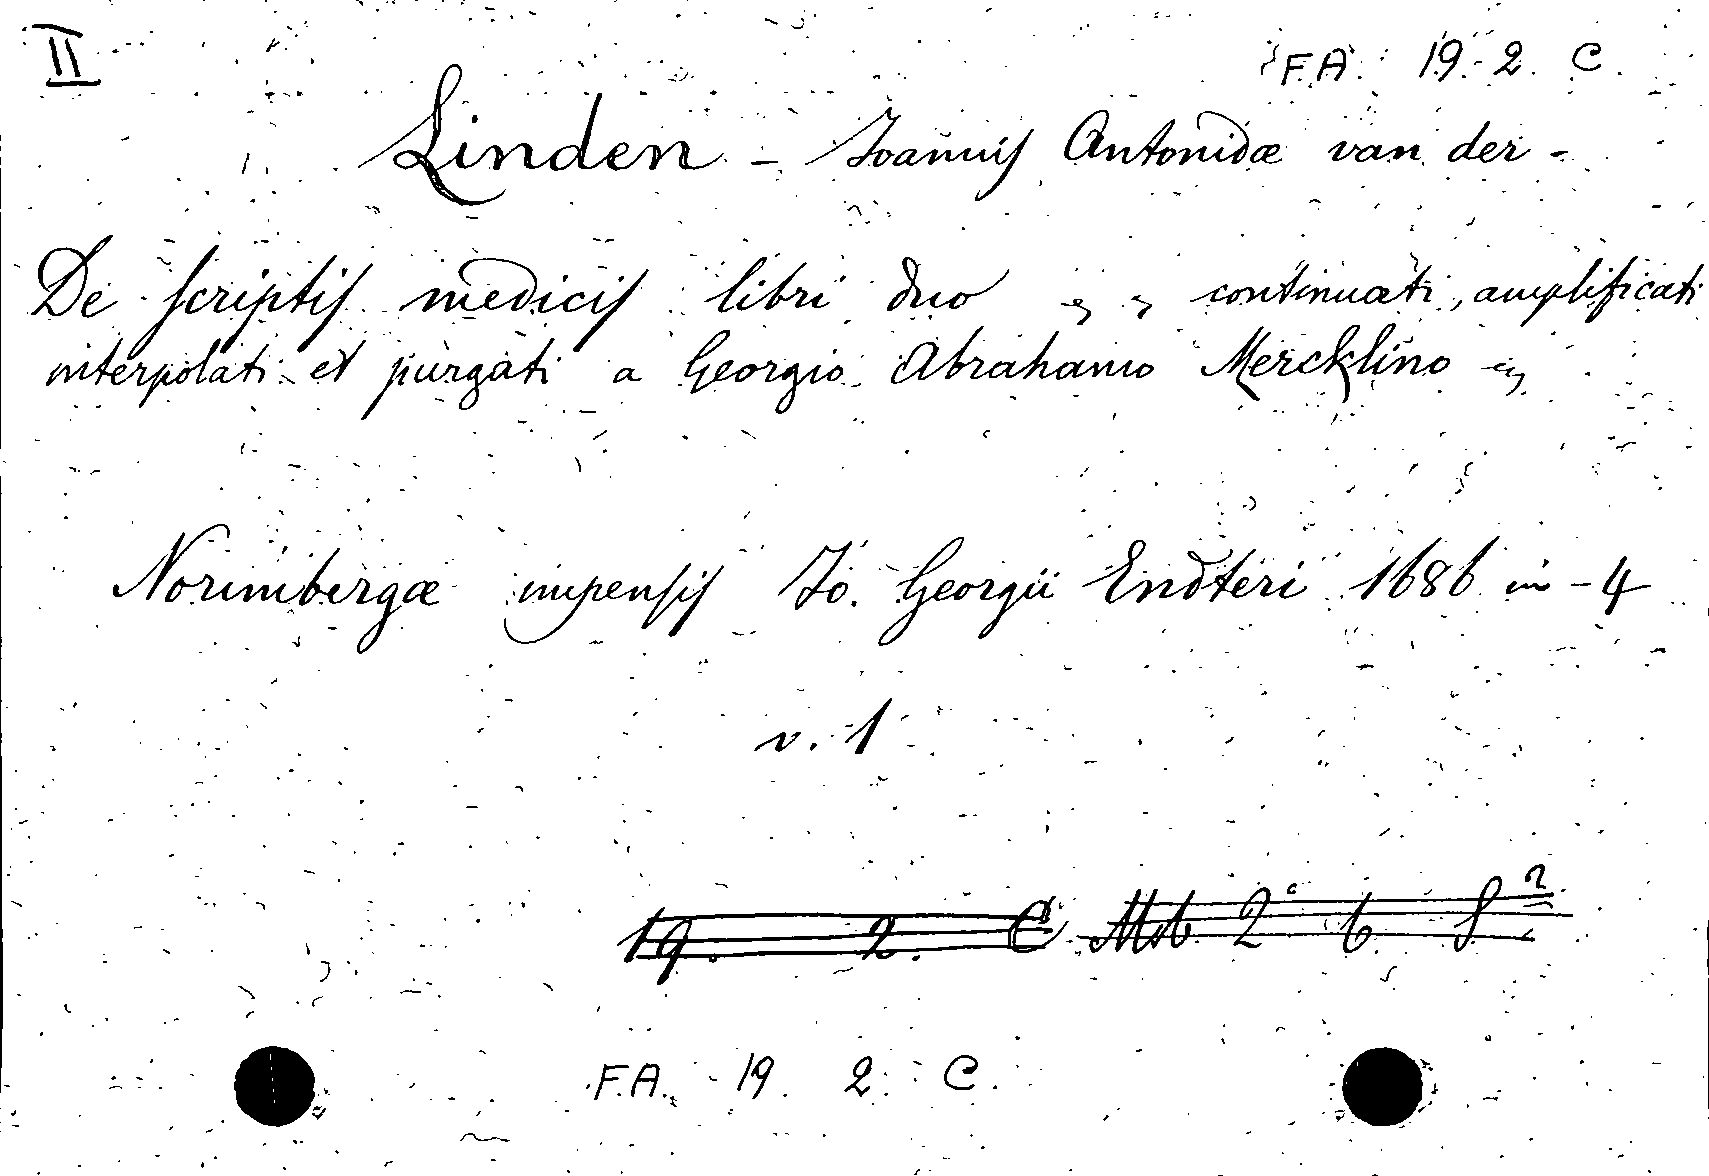 II
F.A. 19. 2. C.
Linden - Joannis Antonidæ van der -
De scriptis medicis libri duo continuati, amplificati
interpolati et purgati a Georgio Abrahamo Mercklino
Norimbergæ impensis Jo. Georgii Endteri 1686 in-4
v. 1
19. 2. C
F.A. 19. 2. C.